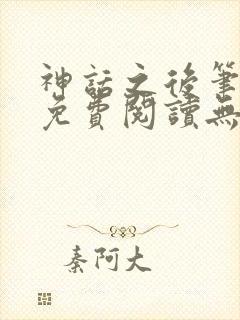 神話之後筆
免費閱讀無
秦阿大